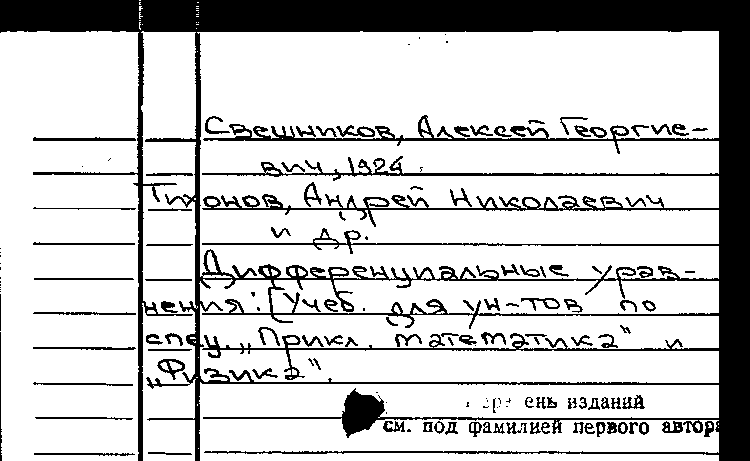 Свешников, Алексей Георгие-
вич, 1924
Тихонов, Андрей Николаевич
и др.
Дифференциальные урав-
нения: [Учеб. для ун-тов по
спец. „Прикл. математика" и
„Физика".
ень изданий
см. под фамилией первого автора